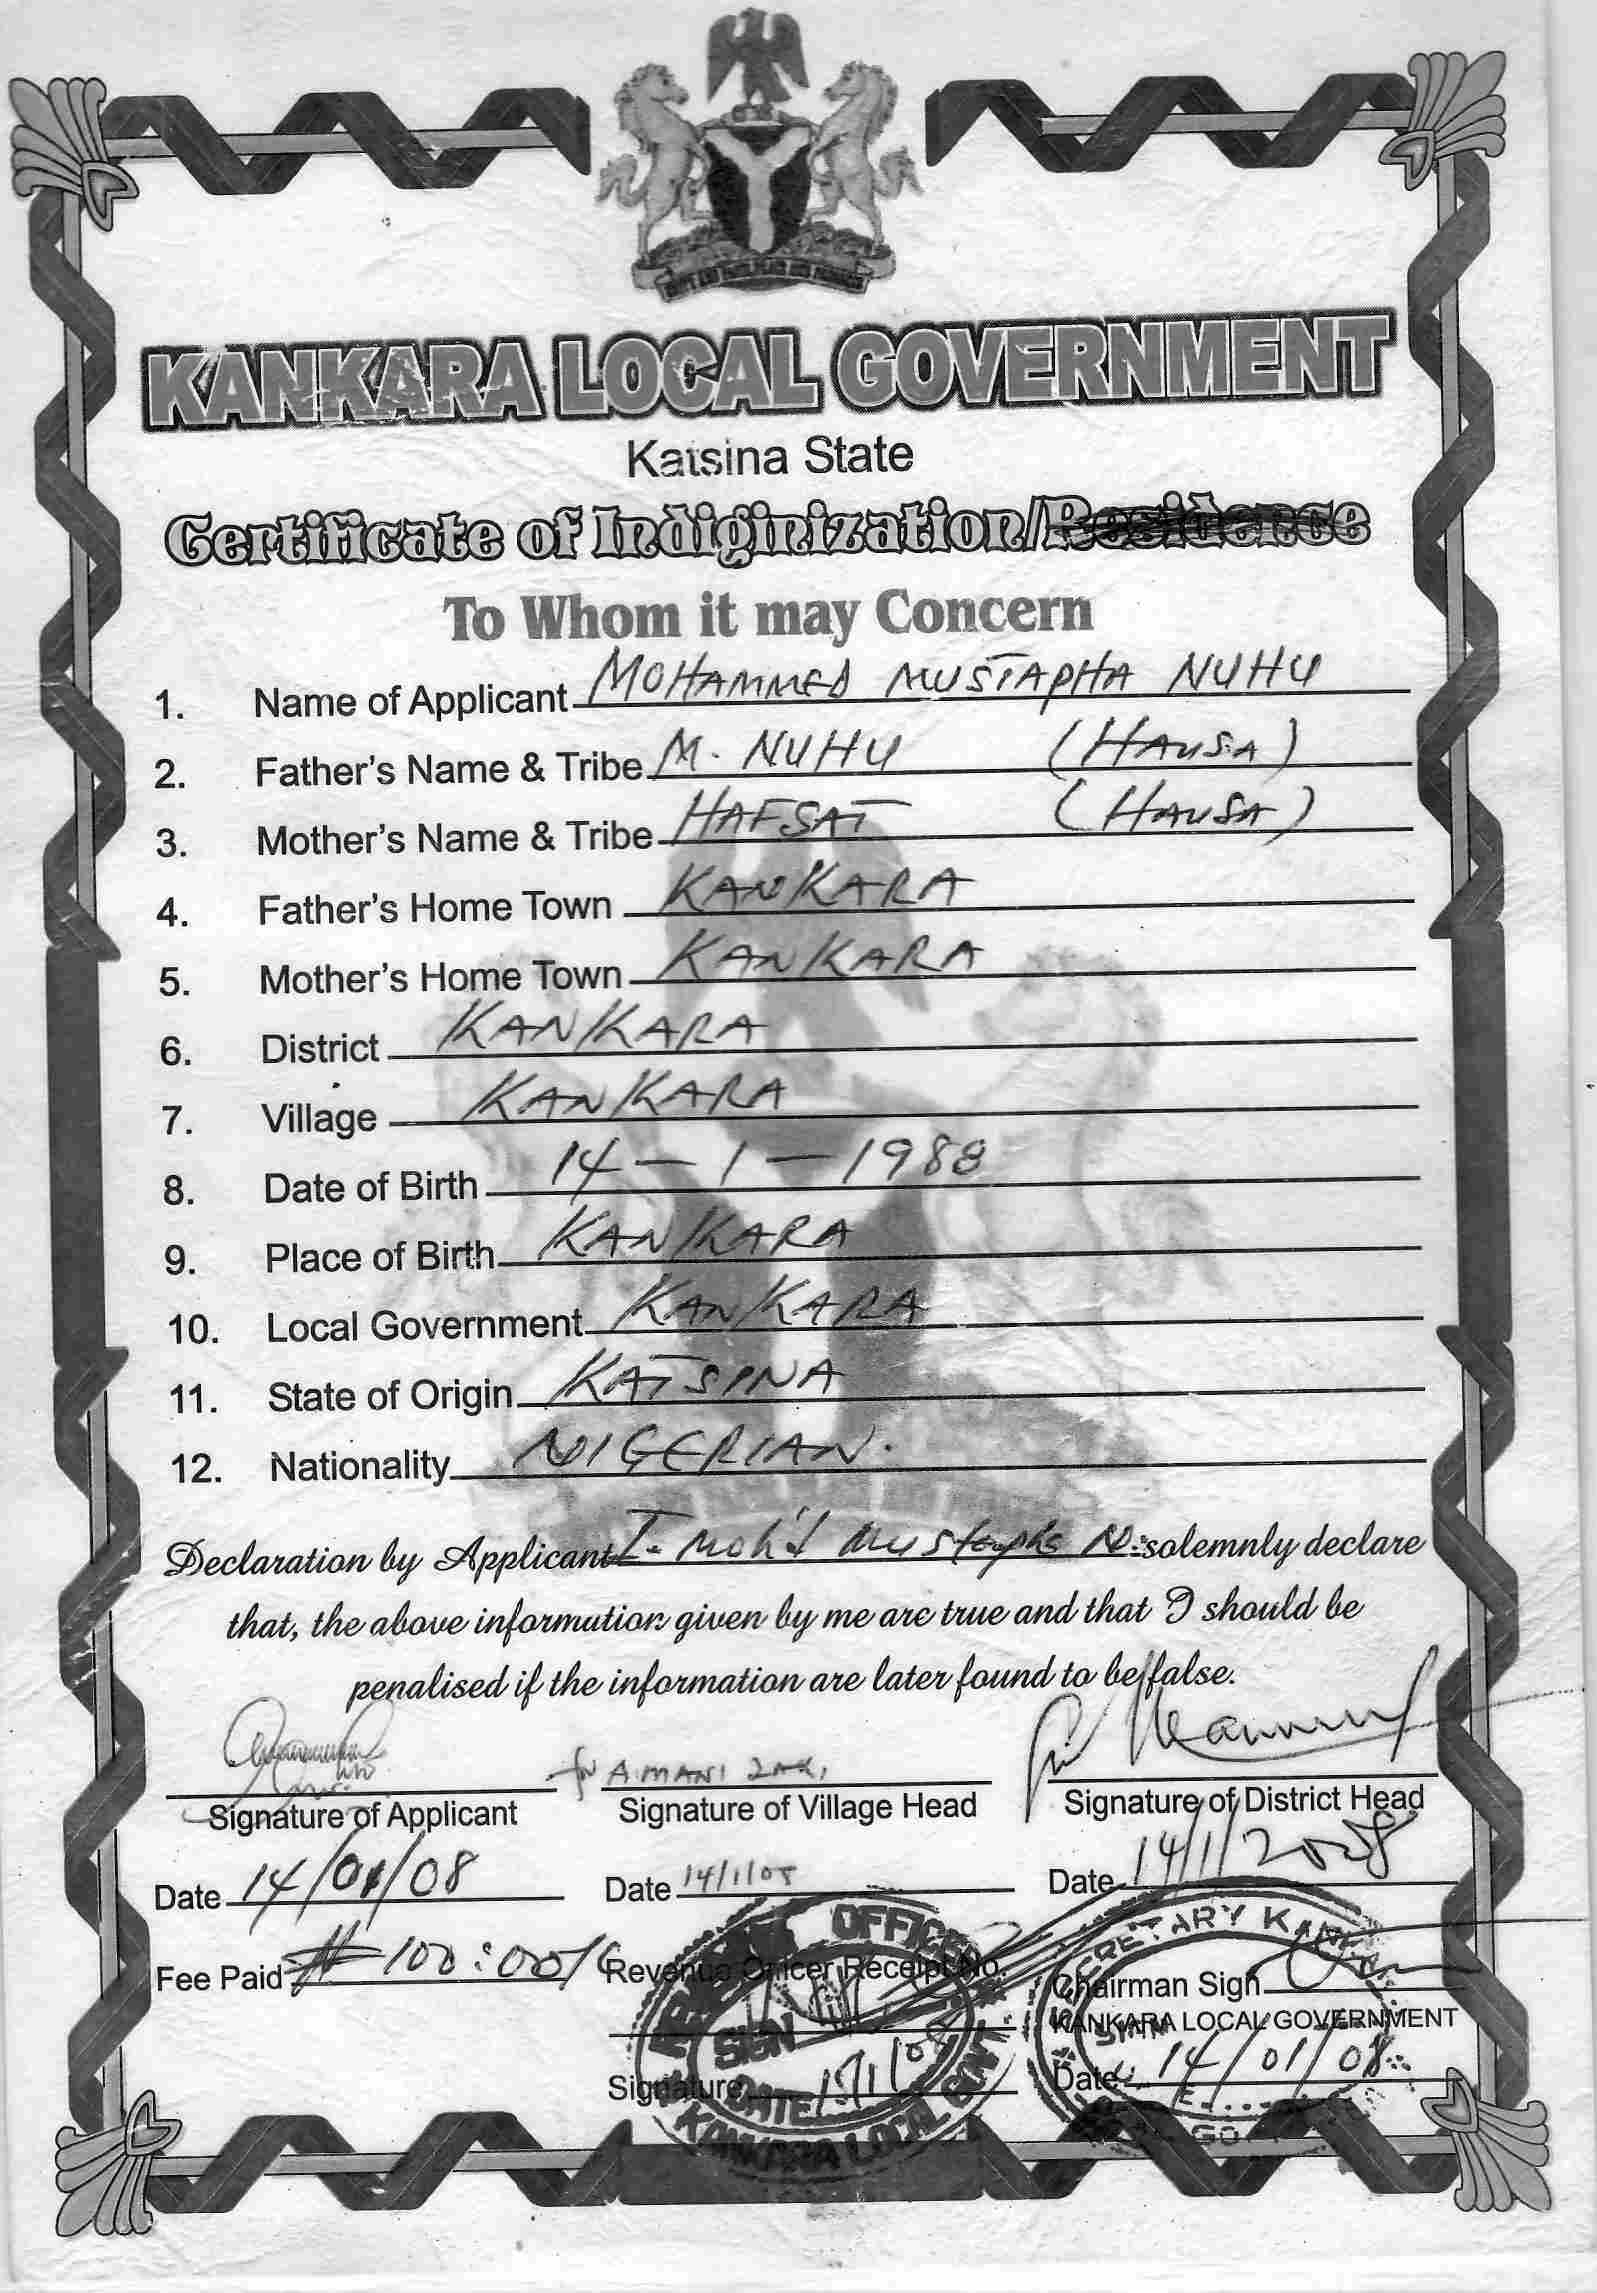 KANKARA LOCAL GOVERNMENT
Katsina State
Certificate of Indiginization/Residence
To Whom it may Concern
1. Name of Applicant MOHAMMED MUSTAPHA NUHU
2. Father's Name & Tribe M. NUHU (HAUSA)
3. Mother's Name & Tribe HAFSAT (HAUSA)
4. Father's Home Town KANKARA
5. Mother's Home Town KANKARA
6. District KANKARA
7. Village KANKARA
8. Date of Birth 14 - 1 - 1988
9. Place of Birth KANKARA
10. Local Government KANKARA
11. State of Origin KATSINA
12. Nationality NIGERIAN.
Declaration by Applicant I. Moh'd Mustapha N. solemnly declare
that, the above information given by me are true and that I should be
penalised if the information are later found to be false.
AMANI
Signature of Applicant Signature of Village Head Signature of District Head
Date 14/01/08 Date 14/1/08 Date 14/1/2008
Fee Paid ₦ 100:00 Revenue Officer Receipt No. Chairman Sign
KANKARA LOCAL GOVERNMENT
Signature Date 14/01/08
OFFICER
SIGN
DATE
KANKARA LOCAL GOVT
SECRETARY KANKARA
SIGN